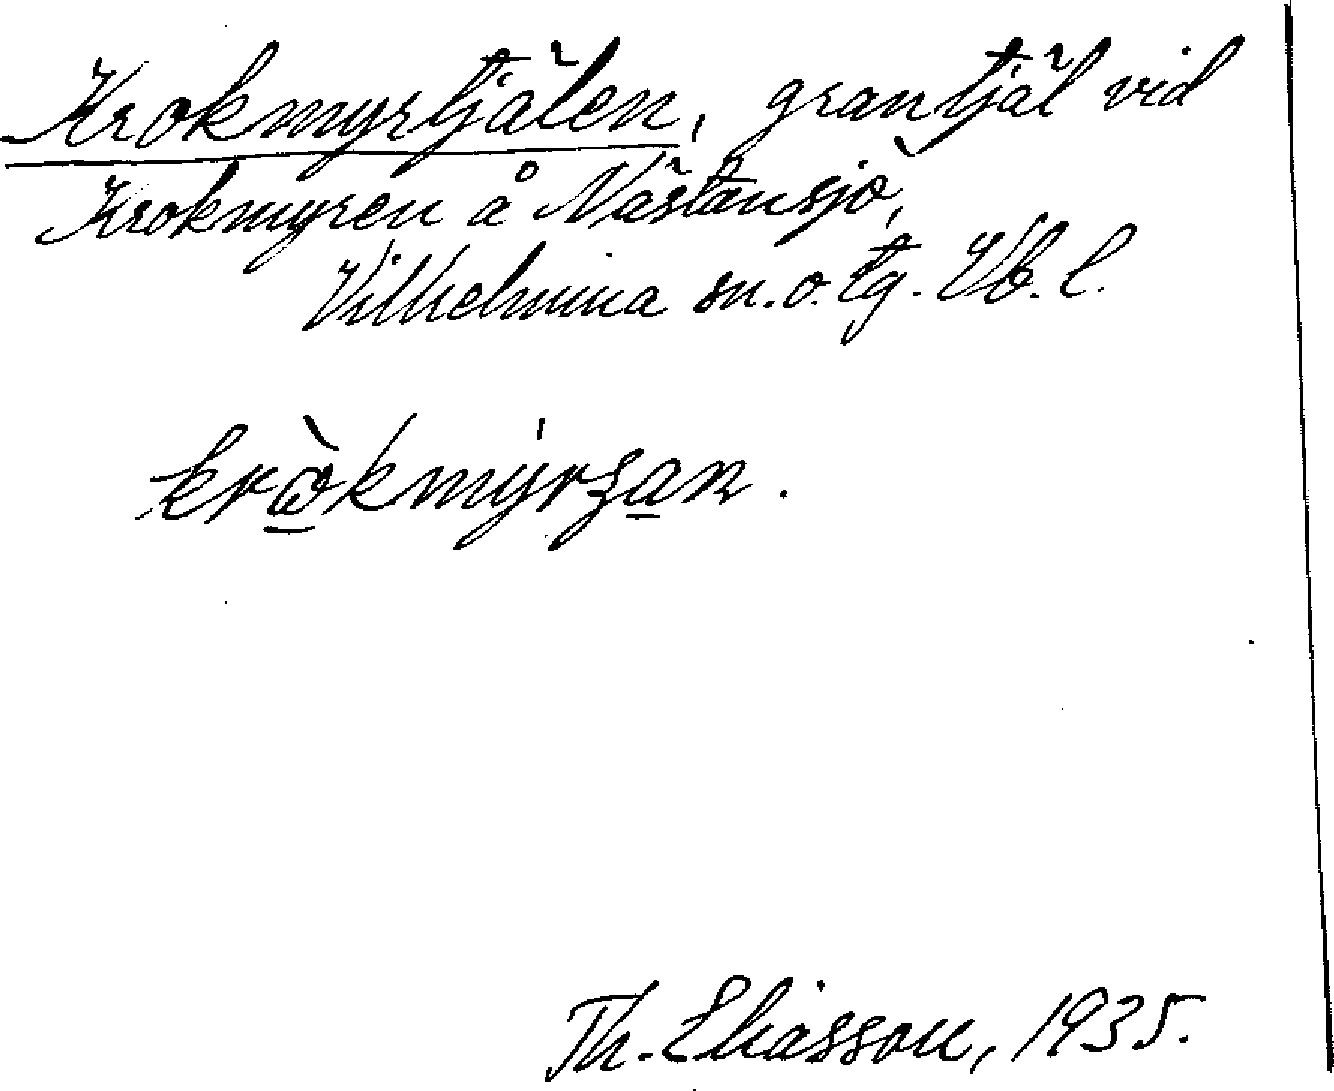 Krokmyrtjälen, grantjäl vid
Krokmyren å Nästansjö,
Vilhelmina sn. o. tg. Vb. l.
Th. Eliasson, 1935.